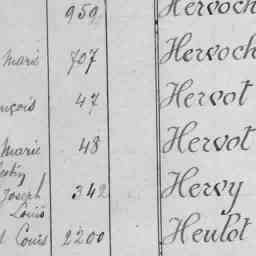 959 Hervoch
Marie 707 Hervoch
nçois 47 Hervot
Marie 48 Hervot
Joseph 342 Hervy
Louis
Couis 2200 Heulot